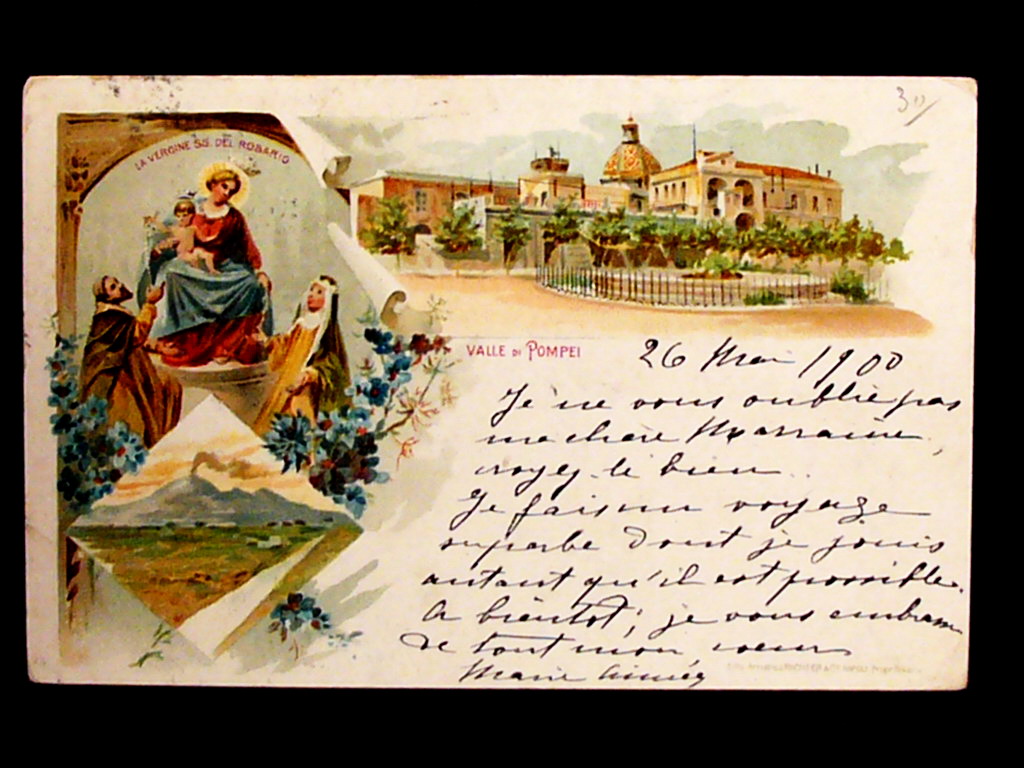 30
LA VERGINE SS. DEL ROSARIO
VALLE DI POMPEI
26 Mai 1900
Je ne vous oublie pas
ma chère Marraine,
croyez-le bien..
Je fais un voyage
superbe dont je jouis
autant qu'il est possible.
A bientôt; je vous embrasse
de tout mon coeur
Marie Aimée